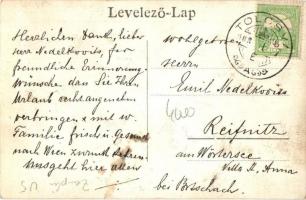 Levelező-Lap
Herzlichen Dank, lieber
Herr Nedelkovits, für
freundliche Erinnerung
wünsche das Sie Ihren
Urlaub bestangenehm
verbringen & mit w.
Familie frisch u. Gesund
nach Wien zurück kehren.
hier allen
Wohlgeboren
Herrn
Emil Nedelkovits
4000
Reifnitz
am Wörtersee
Villa M. Anna
bei Pörtschach